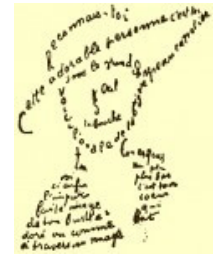 Reconnais-toi
Cette adorable personne c'est toi
sous le grand chapeau canotier
Œil
la bouche
Voici l'ovale de ta figure
ci enfin
l'impar
faite image
de ton buste a
doré vu comme
à travers un nuage
un peu
plus bas
c'est ton
coeur
qui
bat